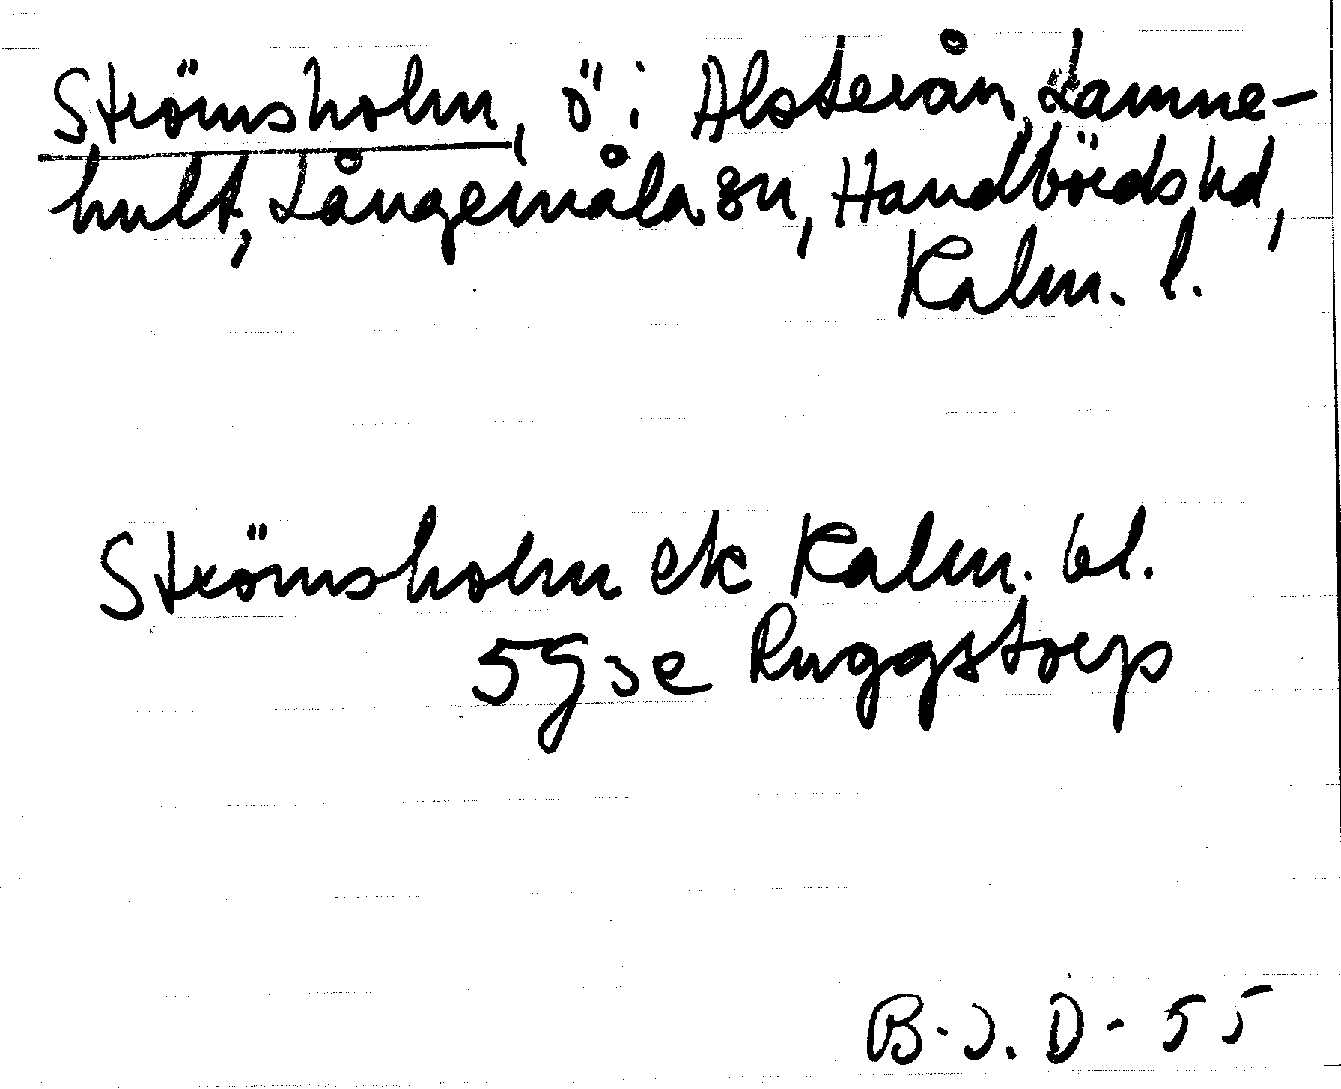 Strömsholm, ö i Alsterån, Lamne-
hult, Långemåla sn, Handbörds hd,
Kalm. l.
Strömsholm ek Kalm. bl.
5G3e Ruggstorp
B-J. D - 55